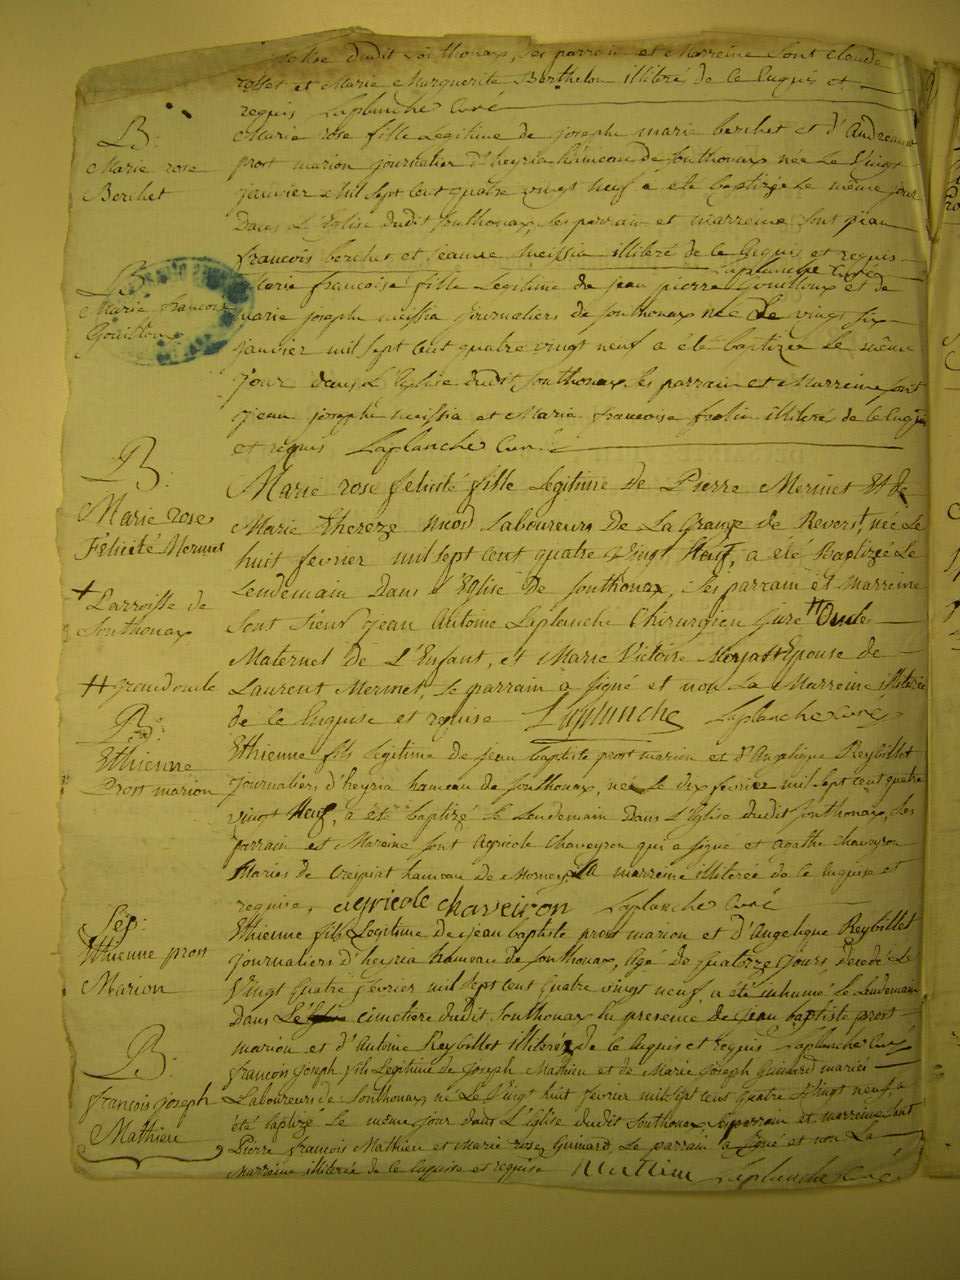 dudit Sonthonax, ses parrain et Marreine sont claude
et Marie Marguerite Berthelon illiteré de ce enquis et
requis Laplanche Curé
B.
Marie rose
Berchet
Marie rose fille Legitime de joseph marie berchet et d'Andreanne
prost marion journalier d'heyria hameau de Sonthonax née Le Vingt
janvier Mil Sept Cent quatre vingt neuf a été baptizée Le même jour
Dans L'Eglise dudit Sonthonax ses parrain et marreine sont jean
francois berchet et jeanne meissia illiteré de ce Enquis et requis
Laplanche Curé
B.
Marie francoise
Gouilloux
Marie francoise fille Legitime de jean pierre Gouilloux et de
marie josephe meissia journaliers de Sonthonax née Le vingt six
janvier mil sept cent quatre vingt neuf a été baptizée le même
jour dans L'Eglise dudit Sonthonax, ses parrain et Marreine sont
jean joseph meissia et Marie francoise illitéré de ce enquis
et requis Laplanche Curé
B.
Marie rose
Félicité Mermet
+ Parroisse de
Sonthonax
++ grand oncle
Marie rose félicité fille Légitime de Pierre Mermet Et de
Marie Thereze nicod Laboureurs De La Grange de Reverst, née Le
huit fevrier mil sept cent quatre Vingt Neuf, a été Baptizée Le
Lendemain Dans L'Eglise De Sonthonax, ses parrain et Marreine
Sont Sieur jean Antoine Laplanche Chirurgien juré ++ Oncle
Maternel De L'Enfant, et Marie Victoire Morjat Epouse de
Laurent Mermet, Le parrain a signé et non La Marreine illiterée
de ce Enquise et requise Laplanche Laplanche Curé
B.
Ethienne
Prost marion
Ethienne fils Legitime de jean baptiste prost marion et d'Angelique Reybillet
journaliers d'heyria hameau de Sonthonax, né Le dix fevrier mil sept cent quatre
vingt Neuf, a été baptizé le Lendemain Dans L'Eglise dudit Sonthonax, Ses
parrain et Mareine sont Agricole Chaveyron qui a signé et agathe Chaveyron
Mariés de Crepiat hameau de Mornay, La marreine illiterée de ce enquise et
requise, agricole chaveiron Laplanche Curé
Sep:
Ethienne prost
Marion
Ethienne fils Legitime de jean baptiste prost marion et d'Angelique Reybillet
journaliers d'heyria hameau de Sonthonax, agé de quatorze jours, Decedé Le
Vingt quatre fevrier mil sept cent quatre vingt neuf, a été inhumé Le Lendemain
Dans Le cimetiere dudit Sonthonax En presence de jean baptiste prost
marion et d'Antoine Reybillet illiterés de ce enquis et requis Laplanche Curé
B.
françois joseph
Mathieu
françois joseph fils Legitime de joseph Mathieu et de Marie joseph Guinard mariés
Laboureurs de Sonthonax né Le Vingt huit fevrier mil sept cent quatre Vingt neuf, a
été baptizé Le même jour Dans L'Eglise dudit Sonthonax, Ses parrain et marreine sont
Pierre francois Mathieu et Marie rose Guinard, Le parrain a signé et non La
Marreine illiterée de ce enquise et requise Mathieu Laplanche Curé